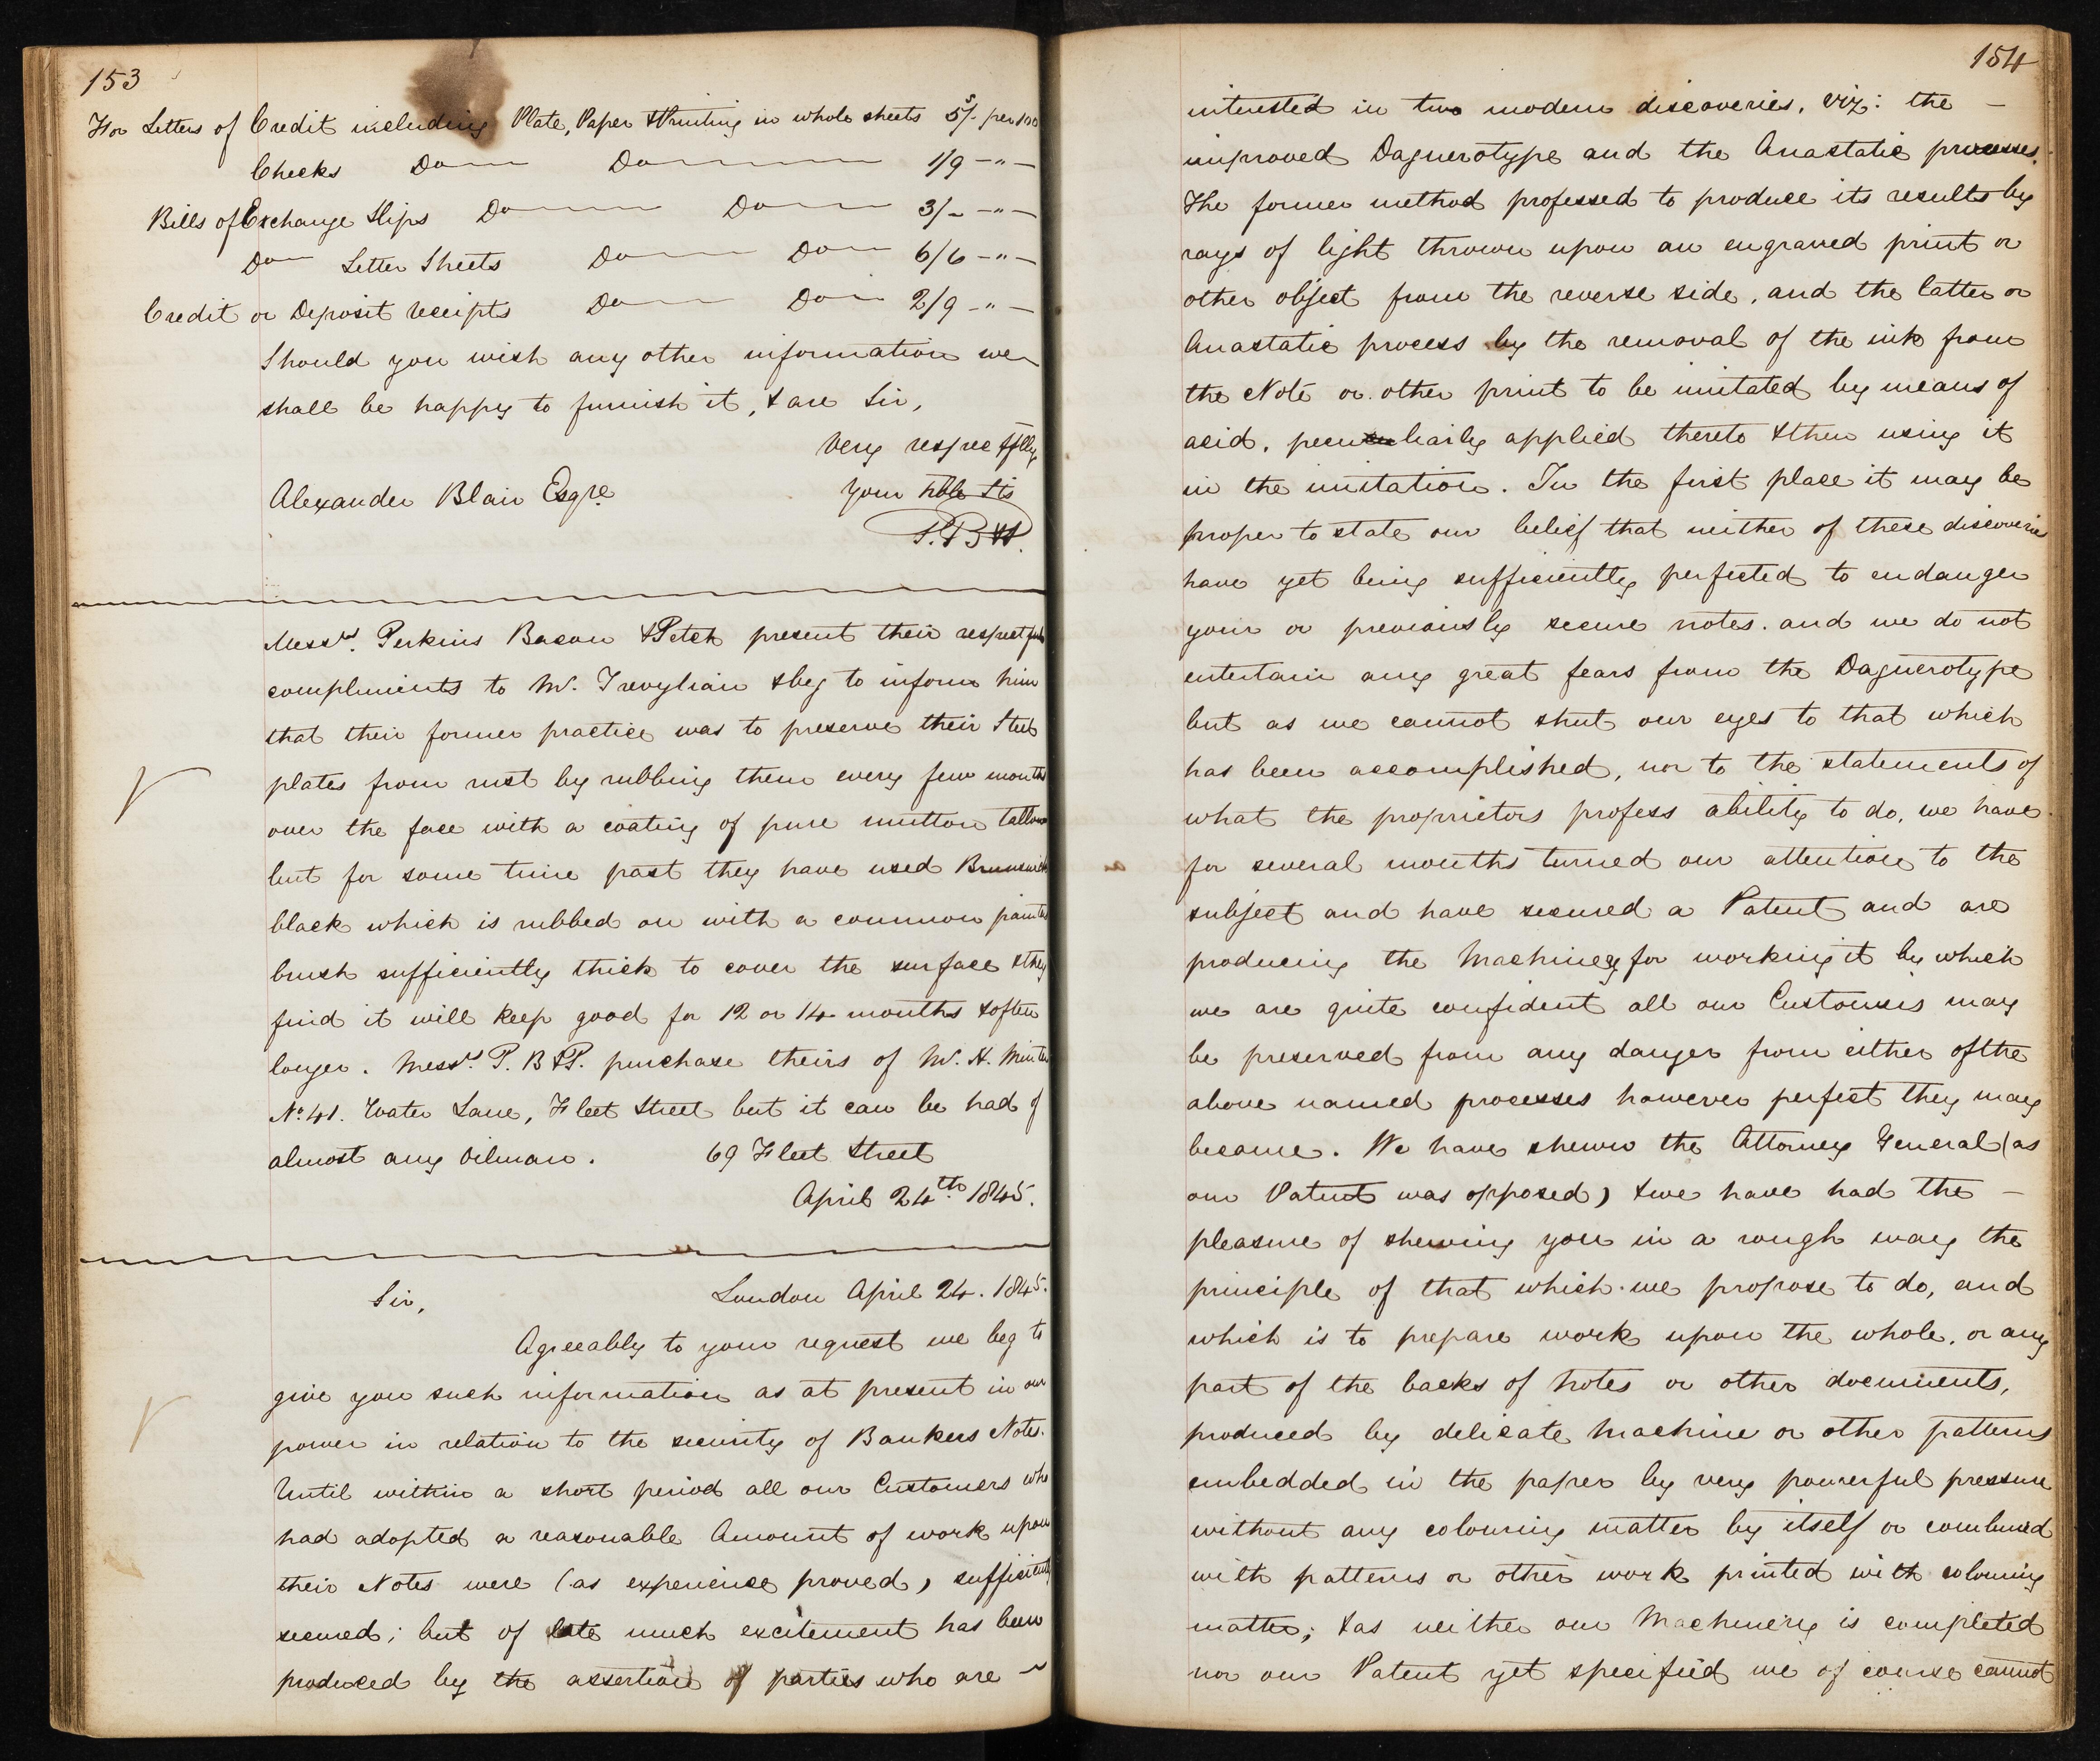 153
For Letters of Credit including Plate, Paper & Printing in whole sheets 5/- per 100
Checks Do Do 1/9 - " -
Bills of Exchange Slips Do Do 3/- - " -
Do Letter Sheets Do Do 6/6 - " -
Credit or Deposit receipts Do Do 2/9 - " -
Should you wish any other information we
shall be happy to furnish it, & are Sir,
Very respectflly
Alexander Blair Esqre. Your hble Sts
P.B&P.
Messrs. Perkins Bacon & Petch present their respectful
compliments to Mr. Trevylian & beg to inform him
that their former practice was to preserve their Steel
plates from rust by rubbing them every few months
over the face with a coating of pure mutton tallow
but for some time past they have used Brunswick
black which is rubbed on with a common painters
brush sufficiently thick to cover the surface & they
find it will keep good for 12 or 14 months & often
longer. Messrs. P. B & P. purchase theirs of Mr. H. Minter
No. 41. Water Lane, Fleet Street but it can be had of
almost any Oilman. 69 Fleet Street
April 24th. 1845.
Sir, London April 24. 1845.
Agreeably to your request we beg to
give you such information as at present in our
power in relation to the security of Bankers Notes.
Until within a short period all our Customers who
had adopted a reasonable Amount of work upon
their Notes were (as experience proved) sufficiently
secured; but of late much excitement has been
produced by the assertion of parties who are
154
interested in two modern discoveries, viz: the -
improved Daguerotype and the Anastatic processes.
The former method professed to produce its results by
rays of light thrown upon an engraved print or
other object from the reverse side, and the latter or
Anastatic process by the removal of the ink from
the Note or other print to be imitated by means of
acid, peculiarly applied thereto & then using it
in the imitation. In the first place it may be
proper to state our belief that neither of these discoveries
have yet being sufficiently perfected to endanger
your or previously secure notes. and we do not
entertain any great fears from the Daguerotype
but as we cannot shut our eyes to that which
has been accomplished, nor to the statements of
what the proprietors profess ability to do, we have
for several months turned our attention to the
subject and have secured a Patent and are
producing the Machinery for working it by which
we are quite confident all our Customers may
be preserved from any danger from either of the
above named processes however perfect they may
become. We have shewn the Attorney General (as
our Patent was opposed) & we have had the -
pleasure of shewing you in a rough way the
principle of that which we propose to do, and
which is to prepare work upon the whole, or any
part of the backs of Notes or other documents,
produced by delicate Machine or other patterns
embedded in the paper by very powerful pressure
without any colouring matter by itself or combined
with patterns or other work printed with colouring
matter; & as neither our Machinery is completed
nor our Patent yet specified we of course cannot